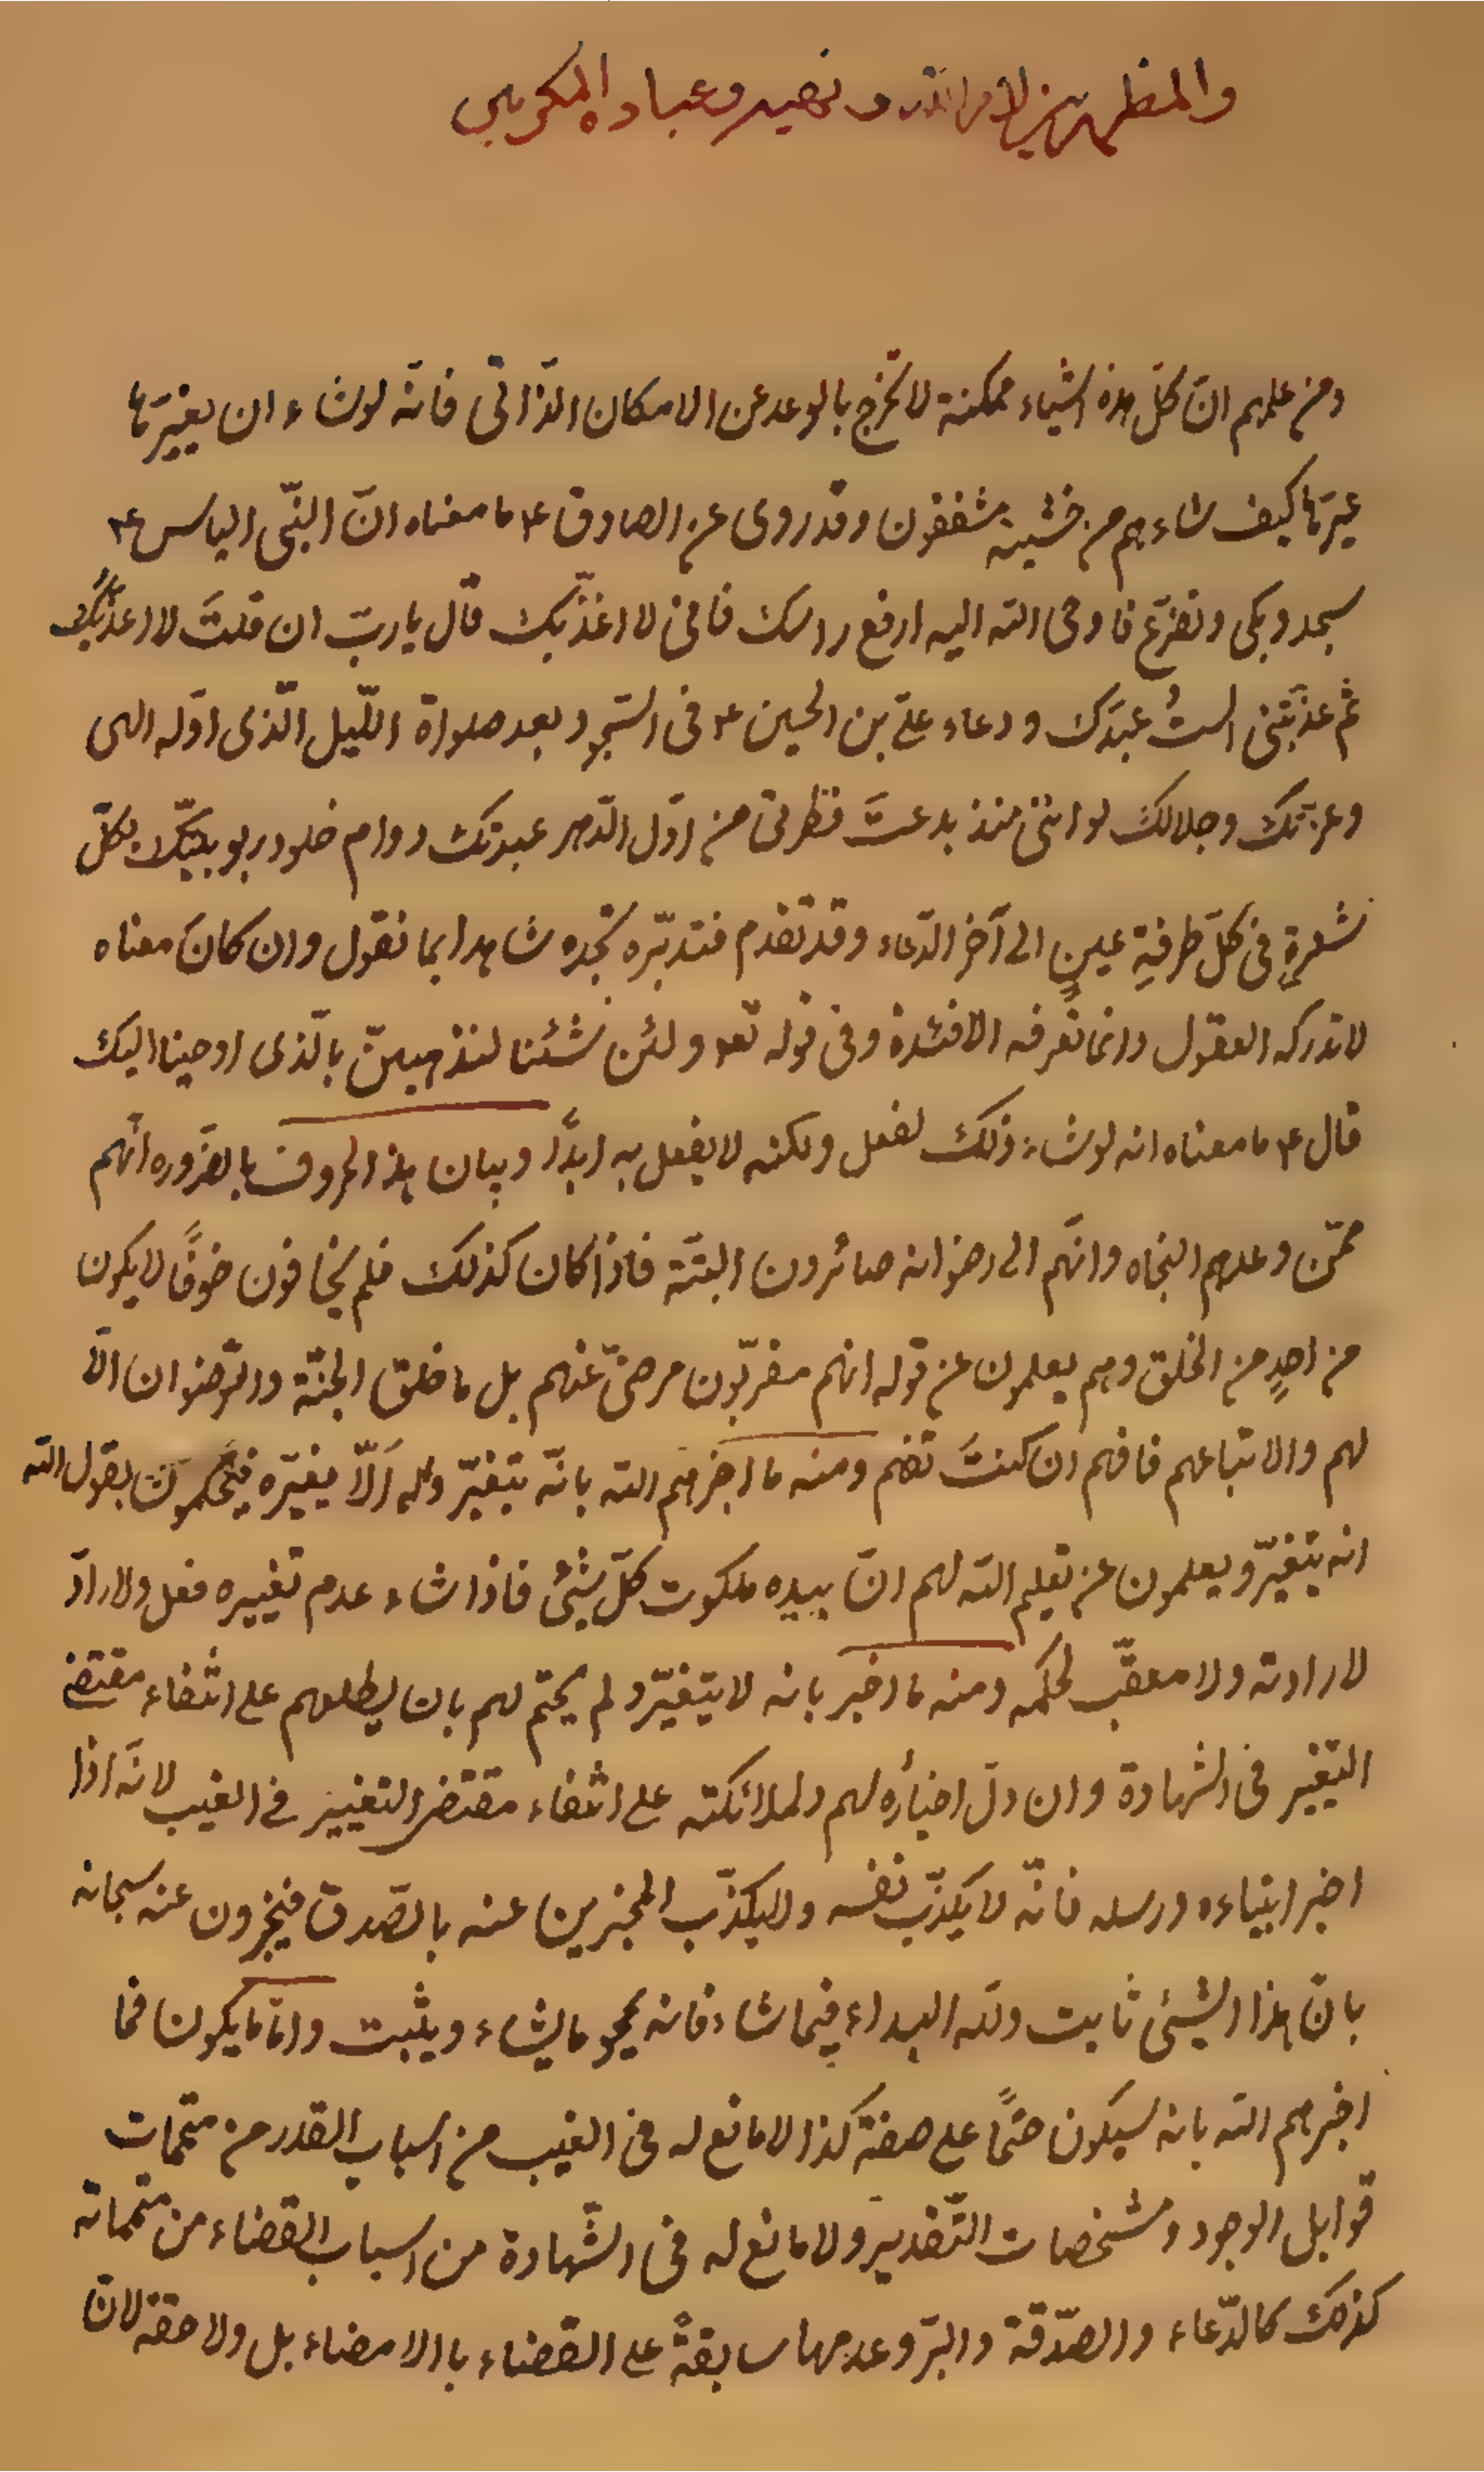 والمظهرين لامر الله ونهيه وعباده المكرمين
ومن علمهم انّ كلّ هذه اشياء ممكنة لا تخرج بالوعد عن الامكان الذّاتى فانّه لو شاء ان يغيّرها
غيّرها كيف شاء وهم من خشيته مشفقون وقد روى عن الصادق ع ما معناه انّ النبّى الياس ع
سجد وبكى وتضرّع فاوحى الله اليه ارفع راسك فانى لا اعذّبك قال يا ربّ ان قلتَ لا اعذّبك
ثم عذّبتنى الستُ عبدَك ودعاء علىّ بن الحسين ع فى السّجود بعد صلواة اللّيل الّذى اوّله الهى
وعزّتك وجلالك لو انّنى منذ بدعتَ فطرتى من اوّل الدّهر عبدتك دوام خلود ربوبيّتك بكلّ
شعرةٍ فى كلّ طرفةِ عينٍ الى آخر الدّعاء وقد تقدم فتدبّره تجده شاهدا بما نقول وان كانَ معناه
لا تدركه العقول وانما تَعرفه الافئدة وفى قوله تعو ولئن شئنا لنذهبنّ بالّذى اوحينا اليك
قال ع ما معناه انه لو شاء ذلك لفعل ولكنه لا يفعل به ابدًا وبيان هذا الحروف بالضّروره انّهم
ممّن وعدهم النجاه وانّهم الى رضوانه صائرون البتّة فاذا كان كذلك فلم يخافون خوفًا لا يكون
من احدٍ من الخلق وهم يعلمون عن قوله انهم مقربّون مرضىّ عنهم بل ما خلق الجنّة والرّضوان الّا
لهم ولاتباعهم فافهم ان كنتَ تفهم ومنه ما اخبرهم الله بانّه يتغيّر وله اَلّا يغيّره فيحكمون بقول الله
انه يتغيّر ويعلمون عن تعليم الله لهم انّ بيده ملكوت كلّ شيئى فاذا شاء عدم تغييره فعل ولا رادّ
لارادته ولا معقّب لحكمه ومنه ما اخبر بانه لا يتغيّر ولم يحتم لهم بان يطلعهم على انتفاء مقتضى
التغيير فى الشهادة وان دلّ اخبارُه لهم ولملائكته على انتفاء مقتضى التغيير فى الغيب لانّه اذا
اخبر انبياءه ورسله فانّه لا يكذّب نفسه ولا يكذّب المخبرين عنه بالصّدق فيخبرون عنه سبحانه
بانّ هذا الشيئى ثابت ولله البداء فيما شاء فانه يمحو ما يشاء ويثبت وامّا ما يكون فما
اخبرهم الله بانه سيكون حتمًا على صفة كذا لا مانع له فى الغيب من اسباب القدر من متممات
قوابل الوجود ومشخصات التّقدير ولا مانع له فى الشّهادة من اسباب القضاء من متمماته
كذلك كالدّعاء والصّدقة والبرّ وعدمها سابقةً على القضاء باالامضاء بل ولاحقة لانّ